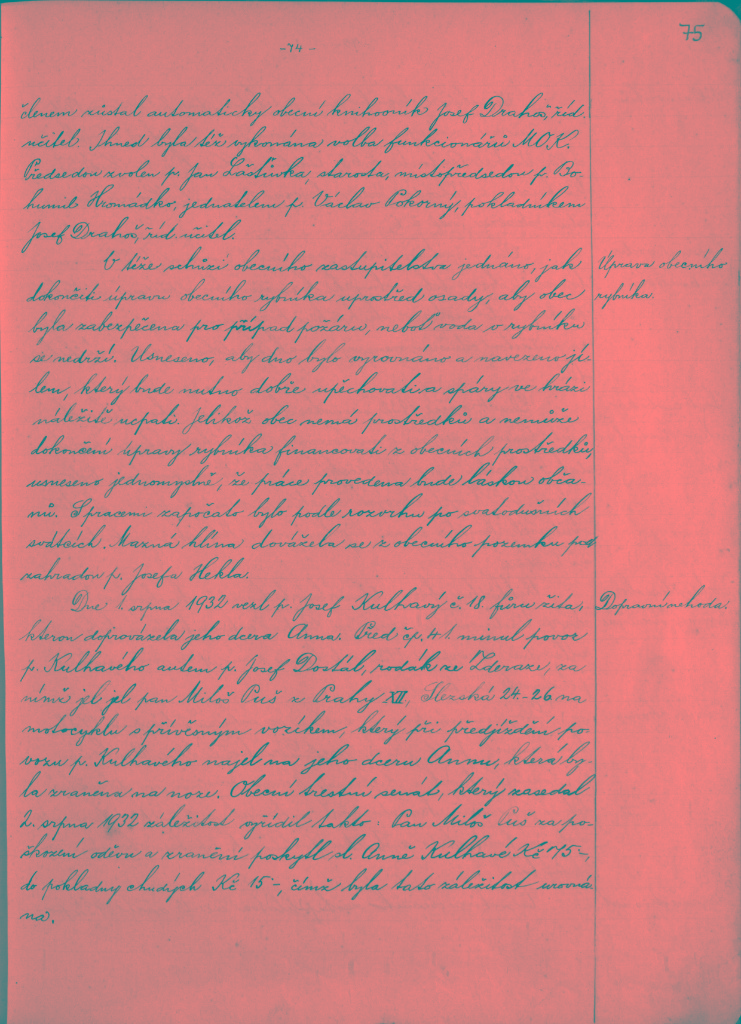 75
-74-
členem zůstal automaticky obecní knihovník Josef Drahoš, říd.
učitel. Ihned byla též vykonána volba funkcionářů M.O.K.
Předsedou zvolen p. Jan Laštůvka, starosta, místopředsedou p. Bo-
humil Hromádko, jednatelem p. Václav Pokorný, pokladníkem
Josef Drahoš, říd. učitel.
V téže schůzi obecního zastupitelstva jednáno, jak
Úprava obecního
dokončiti úpravu obecního rybníka uprostřed osady, aby obec
rybníka.
byla zabezpečena pro případ požáru, neboť voda v rybníku
se nedrží. Usneseno, aby dno bylo vyrovnáno a navezeno jí-
lem, který bude nutno dobře upěchovati a spáry ve hrázi
náležitě ucpati. Jelikož obec nemá prostředků a nemůže
dokončení úpravy rybníka financovati z obecních prostředků,
usneseno jednomyslně, že práce provedena bude láskou obča-
nů. S pracemi započato bylo podle rozvrhu po svatodušních
svátcích. Mazná hlína dovážela se z obecního pozemku pod
zahradou p. Josefa Hekla.
Dne 1. srpna 1932 vezl p. Josef Kulhavý č. 18. fůru žita,
Dopravní nehoda.
kterou doprovázela jeho dcera Anna. Před čp. 41 minul povoz
p. Kulhavého autem p. Josef Dostál, rodák ze Zderaze, za
nímž jel jel pan Miloš Puš z Prahy XII, Slezská 24.-26 na
motocyklu s přívěsným vozíkem, který při předjíždění po-
vozu p. Kulhavého najel na jeho dceru Annu, která by-
la zraněna na noze. Obecní trestní senát, který zasedal
2. srpna 1932 záležitost vyřídil takto: Pan Miloš Puš za po-
škození oděvu a zranění poskytl sl. Anně Kulhavé Kč 75-,
do pokladny chudých Kč 15-, čímž byla tato záležitost urovná-
na.